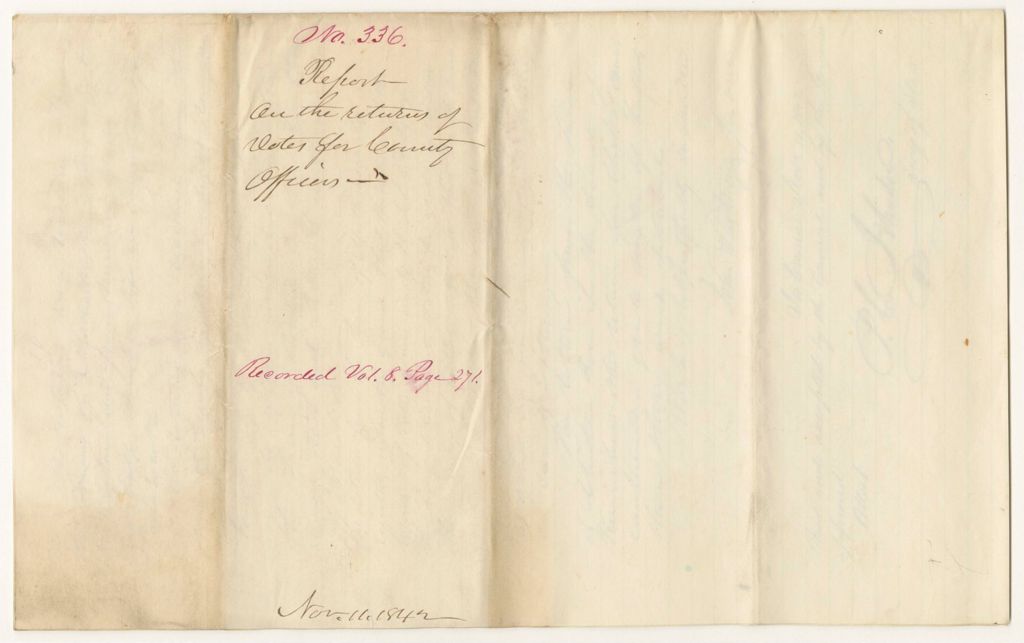 No. 336.
Report
On the returns of
Votes for County
Officers
Recorded Vol. 8. Page 271.
Nov. 11. 1842